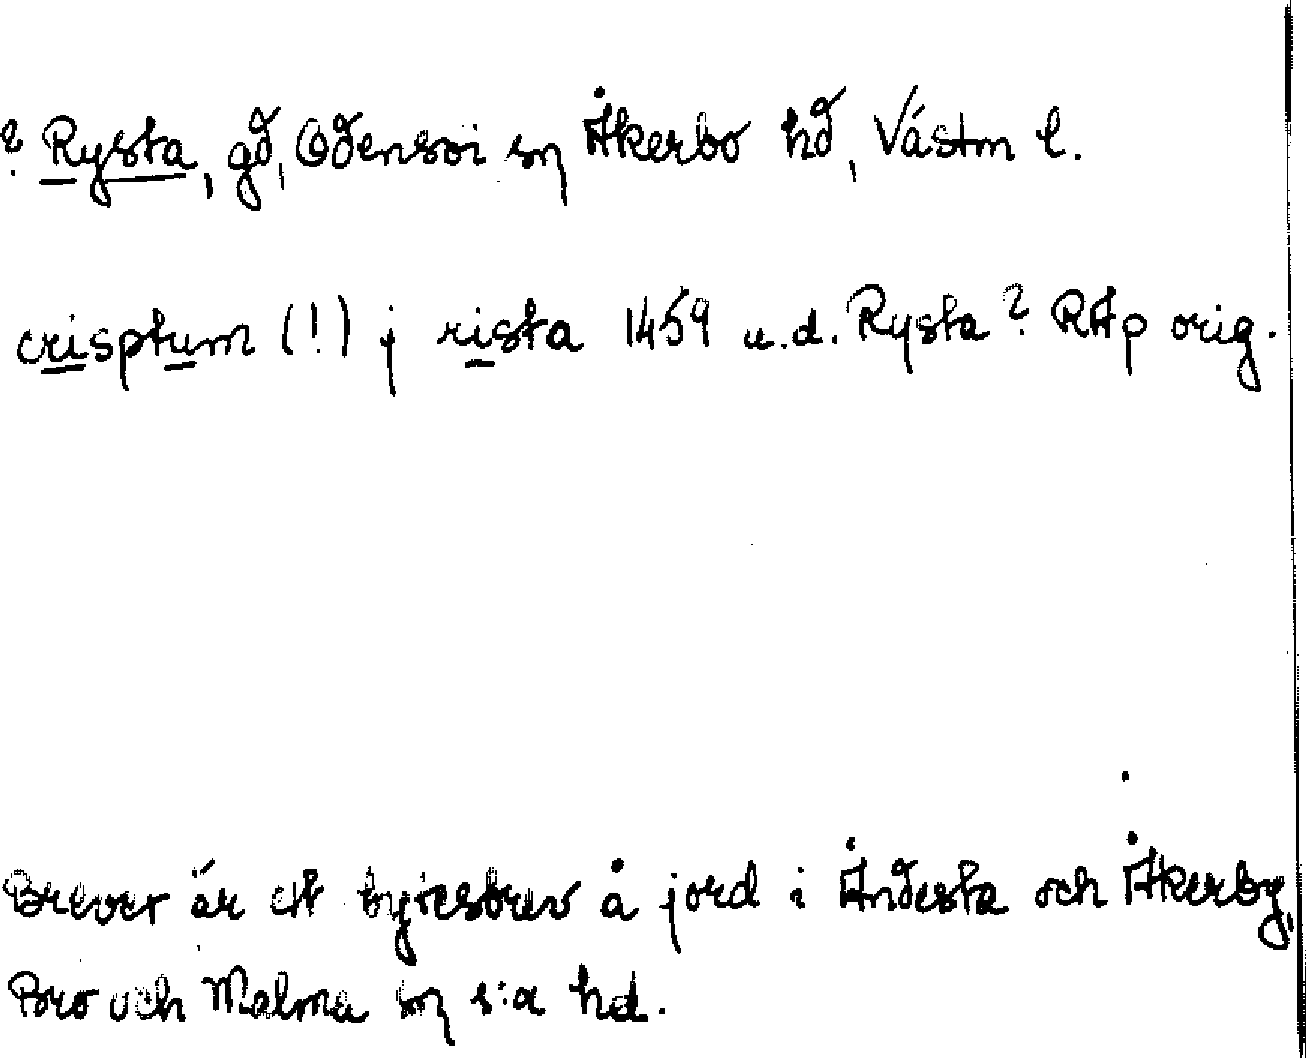 ? Rysta, gd, Odensvi sn Åkerbo hd, Västm l.
crisptum (!) j rista 1459 u.d. Rysta? RAp orig.
Brevet är ett bytesbrev å jord i Åndesta och Åkerby,
Bro och Malma sn s:a hd.